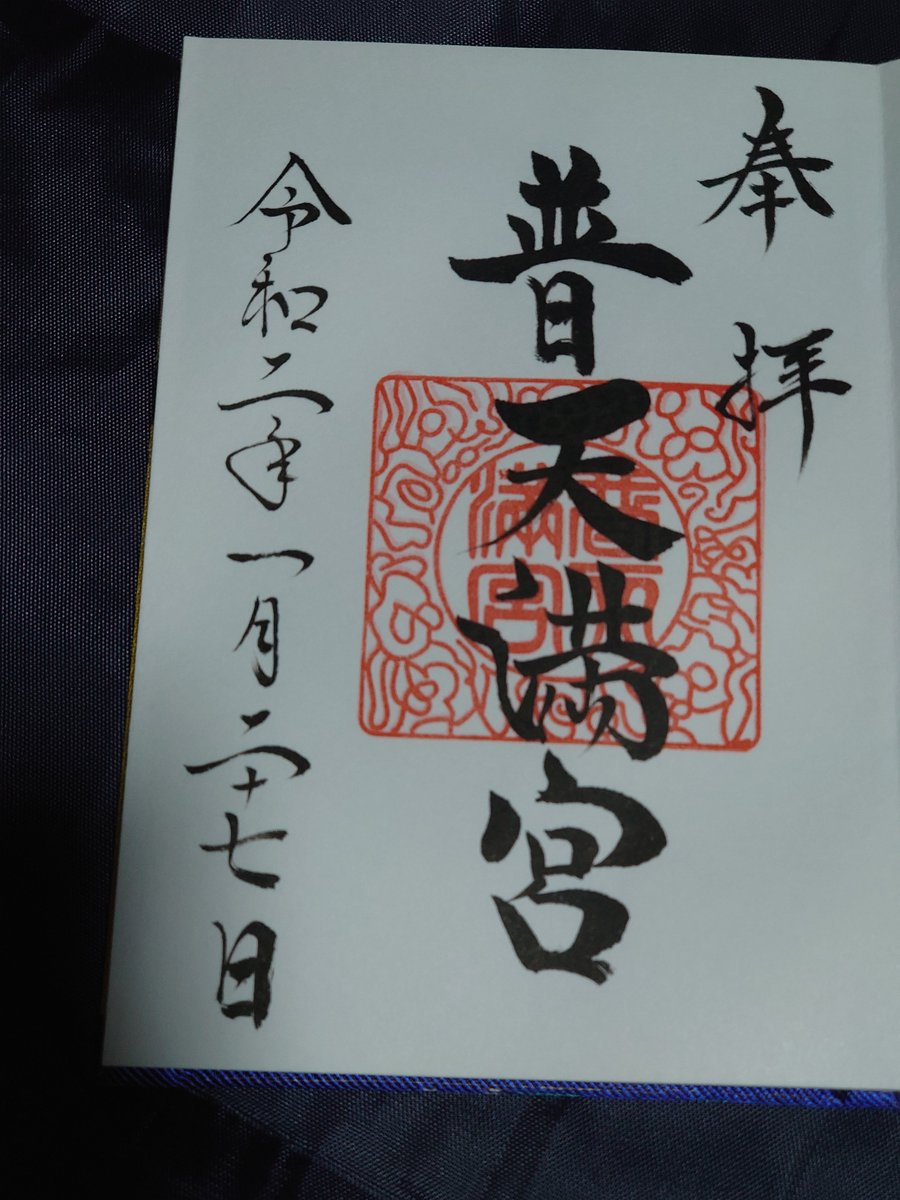 奉拝
普天満宮
普天満宮
令和二年一月二十七日